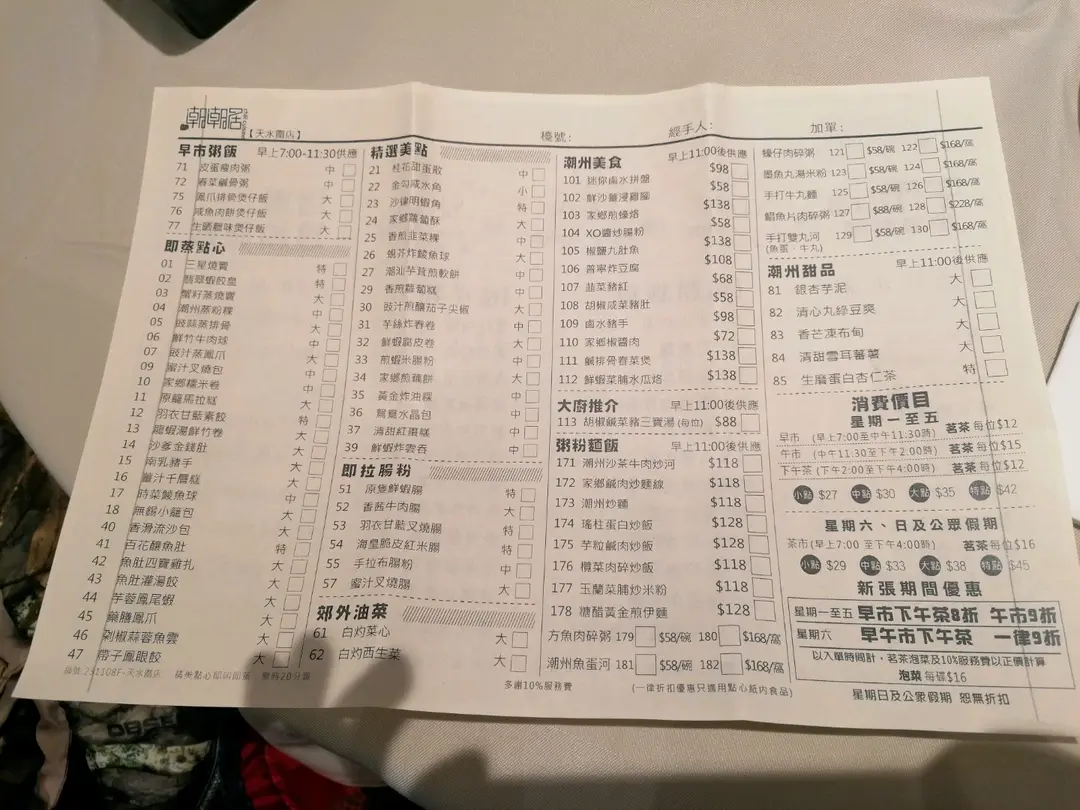 潮潮居【天水圍店】
檯號：
經手人：
加單：
早市粥飯 早上7:00-11:30供應
71 皮蛋瘦肉粥 中
72 春菜鹹骨粥 中
75 鳳爪排骨煲仔飯 大
76 咸魚肉餅煲仔飯 大
77 生曬臘味煲仔飯 大
即蒸點心
01 三星燒賣 特
02 翡翠蝦餃皇 特
03 蟹籽蒸燒賣 大
04 潮州蒸粉粿 中
05 豉蒜蒸排骨 大
06 鮮竹牛肉球 中
07 豉汁蒸鳳爪 大
09 蜜汁叉燒包 中
10 家鄉糯米卷 中
11 原籠馬拉糕 大
12 羽衣甘藍素餃 中
13 龍蝦湯鮮竹卷 大
14 沙爹金錢肚 大
15 南乳豬手 大
16 薑汁千層糕 大
17 時菜鯪魚球 中
18 無錫小籠包 大
40 香滑流沙包 大
41 百花釀魚肚 特
42 魚肚四寶雞扎 大
43 魚肚灌湯餃 大
44 芋蓉鳳尾蝦 大
45 藥膳鳳爪 大
46 剁椒蒜蓉魚雲 大
47 帶子鳳眼餃 大
精選美點
21 桂花甜蛋散 中
22 金勾咸水角 小
23 沙律明蝦角 特
24 家鄉蘿蔔酥 大
25 香煎韭菜粿 中
26 蜆芥炸鯪魚球 大
27 潮汕芋蓉煎軟餅 中
29 香煎蘿蔔糕 中
30 豉汁煎釀茄子尖椒 大
31 芋絲炸春卷 中
32 鮮蝦腐皮卷 大
33 煎蝦米腸粉 中
34 家鄉煎鵝餅 大
35 黃金炸油粿 中
36 鴛鴦水晶包 中
37 清甜紅棗糕 中
39 鮮蝦炸雲吞 中
即拉腸粉
51 原隻鮮蝦腸 特
52 香茜牛肉腸 大
53 羽衣甘藍叉燒腸 特
54 海皇脆皮紅米腸 特
55 手拉布腸粉 中
57 蜜汁叉燒腸 大
郊外油菜
61 白灼菜心 大
62 白灼西生菜 大
潮州美食 早上11:00後供應
101 迷你鹵水拼盤 $98
102 鮮沙薑浸雞腳 $58
103 家鄉煎蠔烙 $138
104 XO醬炒腸粉 $58
105 椒鹽九肚魚 $138
106 普寧炸豆腐 $108
107 韮菜豬紅 $68
108 胡椒咸菜豬肚 $58
109 鹵水豬手 $98
110 家鄉椒醬肉 $72
111 鹹排骨春菜煲 $138
112 鮮蝦菜脯水瓜烙 $138
大廚推介 早上11:00後供應
113 胡椒鹹菜豬三寶湯(每位) $88
粥粉麵飯 早上11:00後供應
171 潮州沙茶牛肉炒河 $118
172 家鄉鹹肉炒麵線 $118
173 潮州炒麵 $118
174 瑤柱蛋白炒飯 $128
175 芋粒鹹肉炒飯 $128
176 欖菜肉碎炒飯 $118
177 玉蘭菜脯炒米粉 $118
178 糖醋黃金煎伊麵 $128
方魚肉碎粥 179 $58/碗 180 $168/窩
潮州魚蛋河 181 $58/碗 182 $168/窩
蠔仔肉碎粥 121 $58/碗 122 $168/窩
墨魚丸湯米粉 123 $58/碗 124 $168/窩
手打牛丸麵 125 $58/碗 126 $168/窩
鯧魚片肉碎粥 127 $88/碗 128 $228/窩
手打雙丸河 129 $58/碗 130 $168/窩
(魚蛋、牛丸)
潮州甜品 早上11:00後供應
81 銀杏芋泥 大
82 清心丸綠豆爽 大
83 香芒凍布甸 大
84 清甜雪耳蕃薯 大
85 生磨蛋白杏仁茶 特
消費價目
星期一至五
早市 (早上7:00至中午11:30時) 茗茶 每位$12
午市 (中午11:30至下午2:00時) 茗茶 每位$15
下午茶 (下午2:00至下午4:00時) 茗茶 每位$12
小點 $27 中點 $30 大點 $35 特點 $42
星期六、日及公眾假期
茶市(早上7:00 至下午4:00時) 茗茶每位$16
小點 $29 中點 $33 大點 $38 特點 $45
新張期間優惠
星期一至五 早市下午茶8折 午市9折
星期六 早午市下午茶 一律9折
以入單時間計，茗茶泡菜及10%服務費以正價計算
泡菜 每碟$16
星期日及公眾假期 恕無折扣
編號:231108F-天水圍店 精美點心即叫即蒸，需時20分鐘
多謝10%服務費
(一律折扣優惠只適用點心紙內食品)